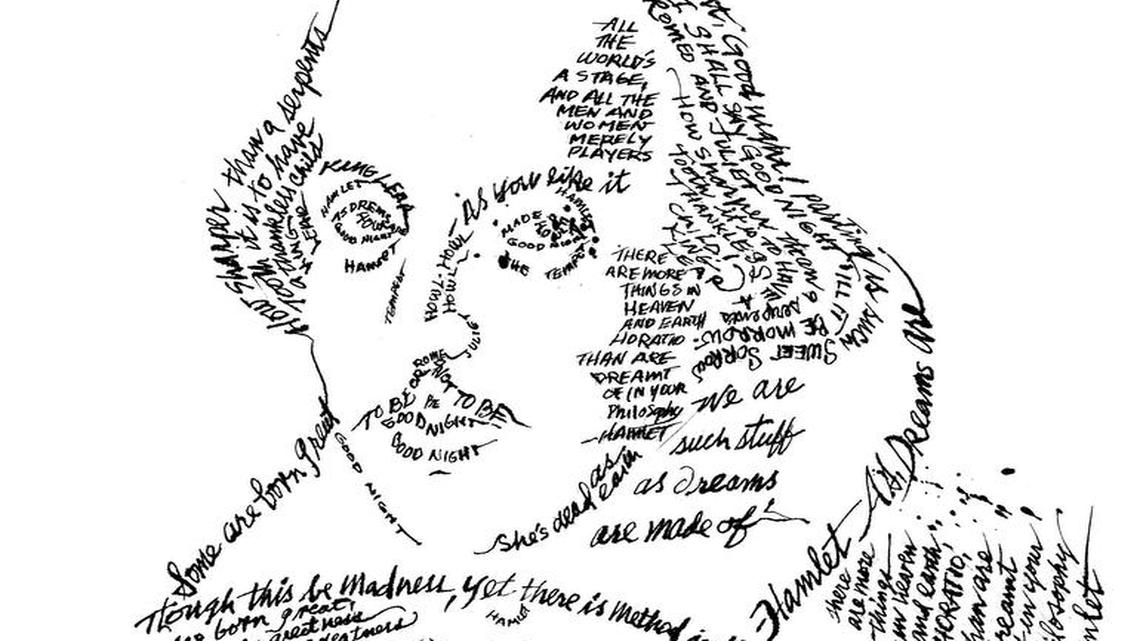 ALL
THE
WORLD'S
A STAGE,
AND ALL THE
MEN AND
WOMEN
MERELY
PLAYERS
As you like it
Good night! parting is such
SWEET SORROW
I SHALL SAY GOOD NIGHT
TILL IT
BE MORROW
ROMEO AND JULIET
HOW SHARPER than a serpent's
TOOTH IT IS TO HAVE
A THANKLESS
CHILD
How sharper than a serpents
tooth it is to have
a thankless child
KING LEAR
KING LEAR
HAMLET
AS DREMS
GOOD NIGHT
HAMLET
TEMPEST
HOWL HOWL
HOWL
MADE
GOOD NIGHT
HAMLET
THE TEMPEST
ROMEO
JULIEY
TO BE OR NOT TO BE
GOODNIGHT
GOOD NIGHT
GOOD NIGHT
THERE
ARE MORE
THINGS IN
HEAVEN
AND EARTH
HORATIO
THAN ARE
DREAMT
OF IN YOUR
Philosophy
-HAMLET
We are
such stuff
as dreams
are made of
She's dead as
earth
Some are born great
Though this be Madness, yet there is Method
HAMLET
born great,
greatness
greatness
-Hamlet
As Dreams are
there
are more
things
in heaven
and earth,
HORATIO,
than are
dreamt
in your